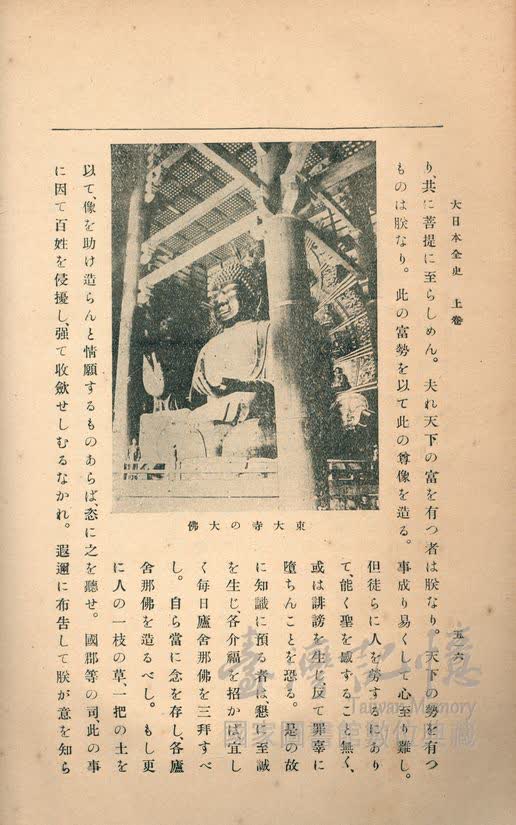 大日本全史　上卷
五六
り、共に菩提に至らしめん。夫れ天下の富を有つ者は朕なり。天下の勢を有つ
ものは朕なり。此の富勢を以て此の尊像を造る。事成り易くして心至り難し。
但徒らに人を勞するにあり
て、能く聖を感すること無く、
或は誹謗を生じ、反て罪辜に
墮ちんことを恐る。是の故
に知識に預る者は、懇に至誠
を生じ、各介福を招かば、宜し
く每日廬舍那佛を三拜すべ
し。自ら當に念を存し、各廬
舍那佛を造るべし。もし更
に人の一枝の草、一把の土を
東大寺の大佛
以て、像を助け造らんと情願するものあらば、恣に之を聽せ。國郡等の司、此の事
に因て百姓を侵擾し、强て收斂せしむるなかれ。遐邇に布告して朕が意を知ら
臺灣記憶
Taiwan Memory
國家圖書館數位典藏